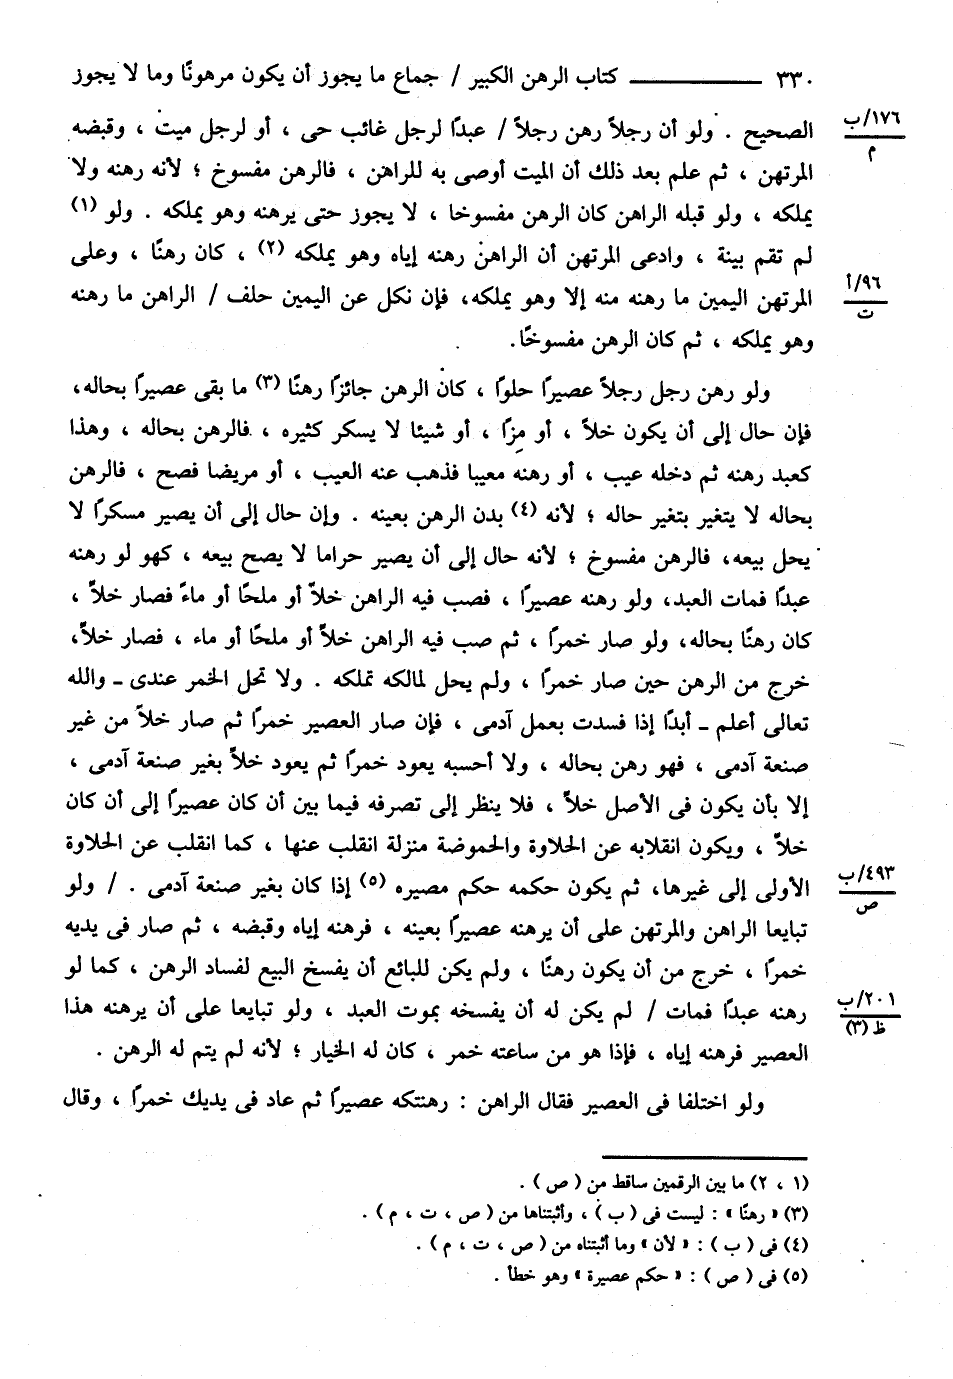 ٣٣٠ ــــــــــــ كتاب الرهن الكبير / جماع ما يجوز أن يكون مرهونًا وما لا يجوز
الصحيح . ولو أن رجلاً رهن رجلاً / عبدًا لرجل غائب حى ، أو لرجل ميت ، وقبضه
١٧٦/ب
م
المرتهن ، ثم علم بعد ذلك أن الميت أوصى به للراهن ، فالرهن مفسوخ ؛ لأنه رهنه ولا
يملكه ، ولو قبله الراهن كان الرهن مفسوخا ، لا يجوز حتى يرهنه وهو يملكه . ولو (١)
لم تقم بينة ، وادعى المرتهن أن الراهن رهنه إياه وهو يملكه (٢) ، كان رهنًا ، وعلى
المرتهن اليمين ما رهنه منه إلا وهو يملكه، فإن نكل عن اليمين حلف / الراهن ما رهنه
٩٦/أ
ت
وهو يملكه ، ثم كان الرهن مفسوخًا.
ولو رهن رجل رجلاً عصيرًا حلوًا ، كان الرهن جائزًا رهنًا (٣) ما بقى عصيرًا بحاله،
فإن حال إلى أن يكون خلاً ، أو مِزًا ، أو شيئا لا يسكر كثيره ، فالرهن بحاله ، وهذا
كعبد رهنه ثم دخله عيب ، أو رهنه معيبا فذهب عنه العيب ، أو مريضا فصح ، فالرهن
بحاله لا يتغير بتغير حاله ؛ لأنه (٤) بدن الرهن بعينه . وإن حال إلى أن يصير مسكرًا لا
يحل بيعه، فالرهن مفسوخ ؛ لأنه حال إلى أن يصير حراما لا يصح بيعه ، كهو لو رهنه
عبدًا فمات العبد، ولو رهنه عصيرًا ، فصب فيه الراهن خلاً أو ملحًا أو ماءً فصار خلاً ،
كان رهنًا بحاله، ولو صار خمرًا ، ثم صب فيه الراهن خلاً أو ملحًا أو ماء ، فصار خلاً،
خرج من الرهن حين صار خمرًا ، ولم يحل لمالكه تملكه . ولا تحل الخمر عندى ـ والله
تعالى أعلم ـ أبدًا إذا فسدت بعمل آدمى ، فإن صار العصير خمرًا ثم صار خلاً من غير
صنعة آدمى ، فهو رهن بحاله ، ولا أحسبه يعود خمرًا ثم يعود خلاً بغير صنعة آدمى ،
إلا بأن يكون فى الأصل خلاً ، فلا ينظر إلى تصرفه فيما بين أن كان عصيرًا إلى أن كان
خلاً ، ويكون انقلابه عن الحلاوة والحموضة منزلة انقلب عنها ، كما انقلب عن الحلاوة
الأولى إلى غيرها، ثم يكون حكمه حكم مصيره (٥) إذا كان بغير صنعة آدمى . / ولو
٤٩٣/ب
ص
تبايعا الراهن والمرتهن على أن يرهنه عصيرًا بعينه ، فرهنه إياه وقبضه ، ثم صار فى يديه
خمرًا ، خرج من أن يكون رهنًا ، ولم يكن للبائع أن يفسخ البيع لفساد الرهن ، كما لو
رهنه عبدًا فمات / لم يكن له أن يفسخه بموت العبد ، ولو تبايعا على أن يرهنه هذا
٢٠١/ب
ظ (٣)
العصير فرهنه إياه ، فإذا هو من ساعته خمر ، كان له الخيار ؛ لأنه لم يتم له الرهن .
ولو اختلفا فى العصير فقال الراهن : رهنتكه عصيرًا ثم عاد فى يديك خمرًا ، وقال
(١ ، ٢) ما بين الرقمين ساقط من ( ص ) .
(٣) « رهنًا » : ليست فى ( ب ) ، وأثبتناها من ( ص ، ت ، م ) .
(٤) فى ( ب ) : « لأن » وما أثبتناه من ( ص ، ت ، م ) .
(٥) فى ( ص ) : « حكم عصيرة » وهو خطأ .